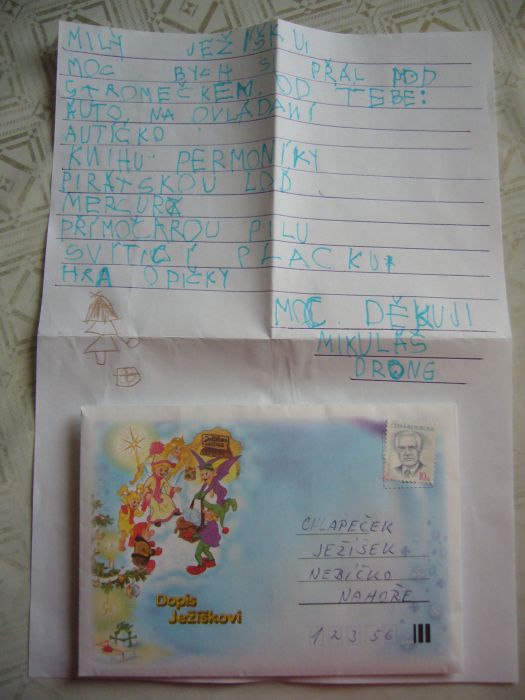 MILÝ JEŽÍŠKU
MOC BYCH SI PŘÁL POD
STROMEČKEM OD TEBE:
AUTO NA OVLÁDÁNÍ
AUTÍČKO
KNIHU PERMONÍKY
PIRÁTSKOU LOĎ
MERCUR
PŘÍMOČAROU PILU
SVÍTÍCÍ PLACKU
HRA OPIČKY
MOC DĚKUJI
MIKULÁŠ
DRONG
ČESKÁ REPUBLIKA
10
CHLAPEČEK
JEŽÍŠEK
NEBÍČKO
NAHOŘE
12356
Dopis
Ježíškovi